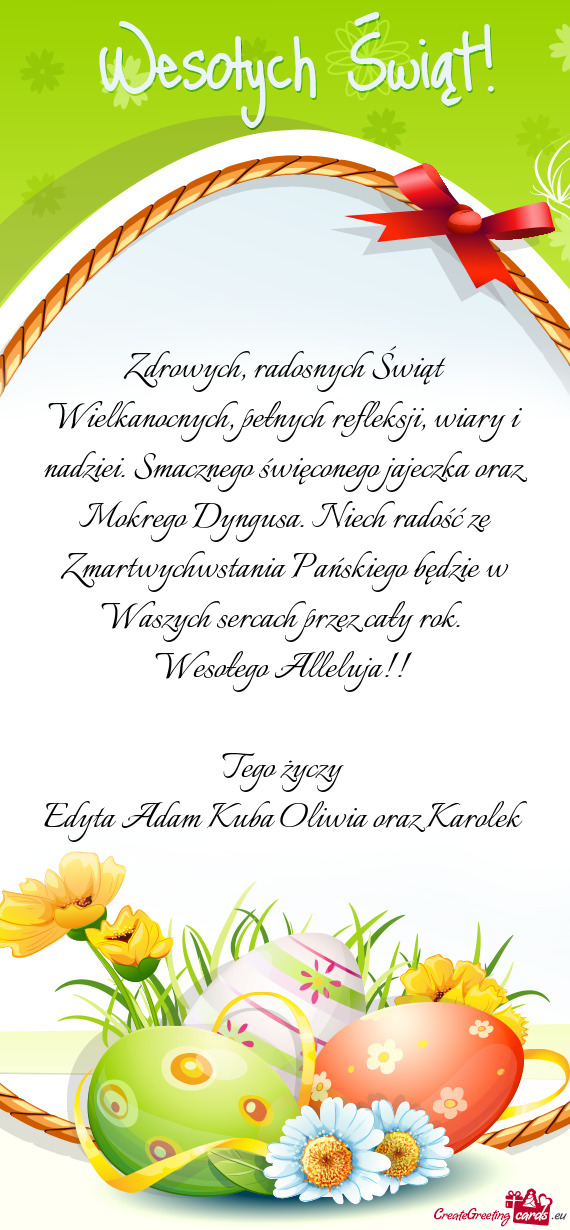 Wesołych Świąt!
Zdrowych, radosnych Świąt
Wielkanocnych, pełnych refleksji, wiary i
nadziei. Smacznego święconego jajeczka oraz
Mokrego Dyngusa. Niech radość ze
Zmartwychwstania Pańskiego będzie w
Waszych sercach przez cały rok.
Wesołego Alleluja!!
Tego życzy
Edyta Adam Kuba Oliwia oraz Karolek
CreateGreetingcards.eu